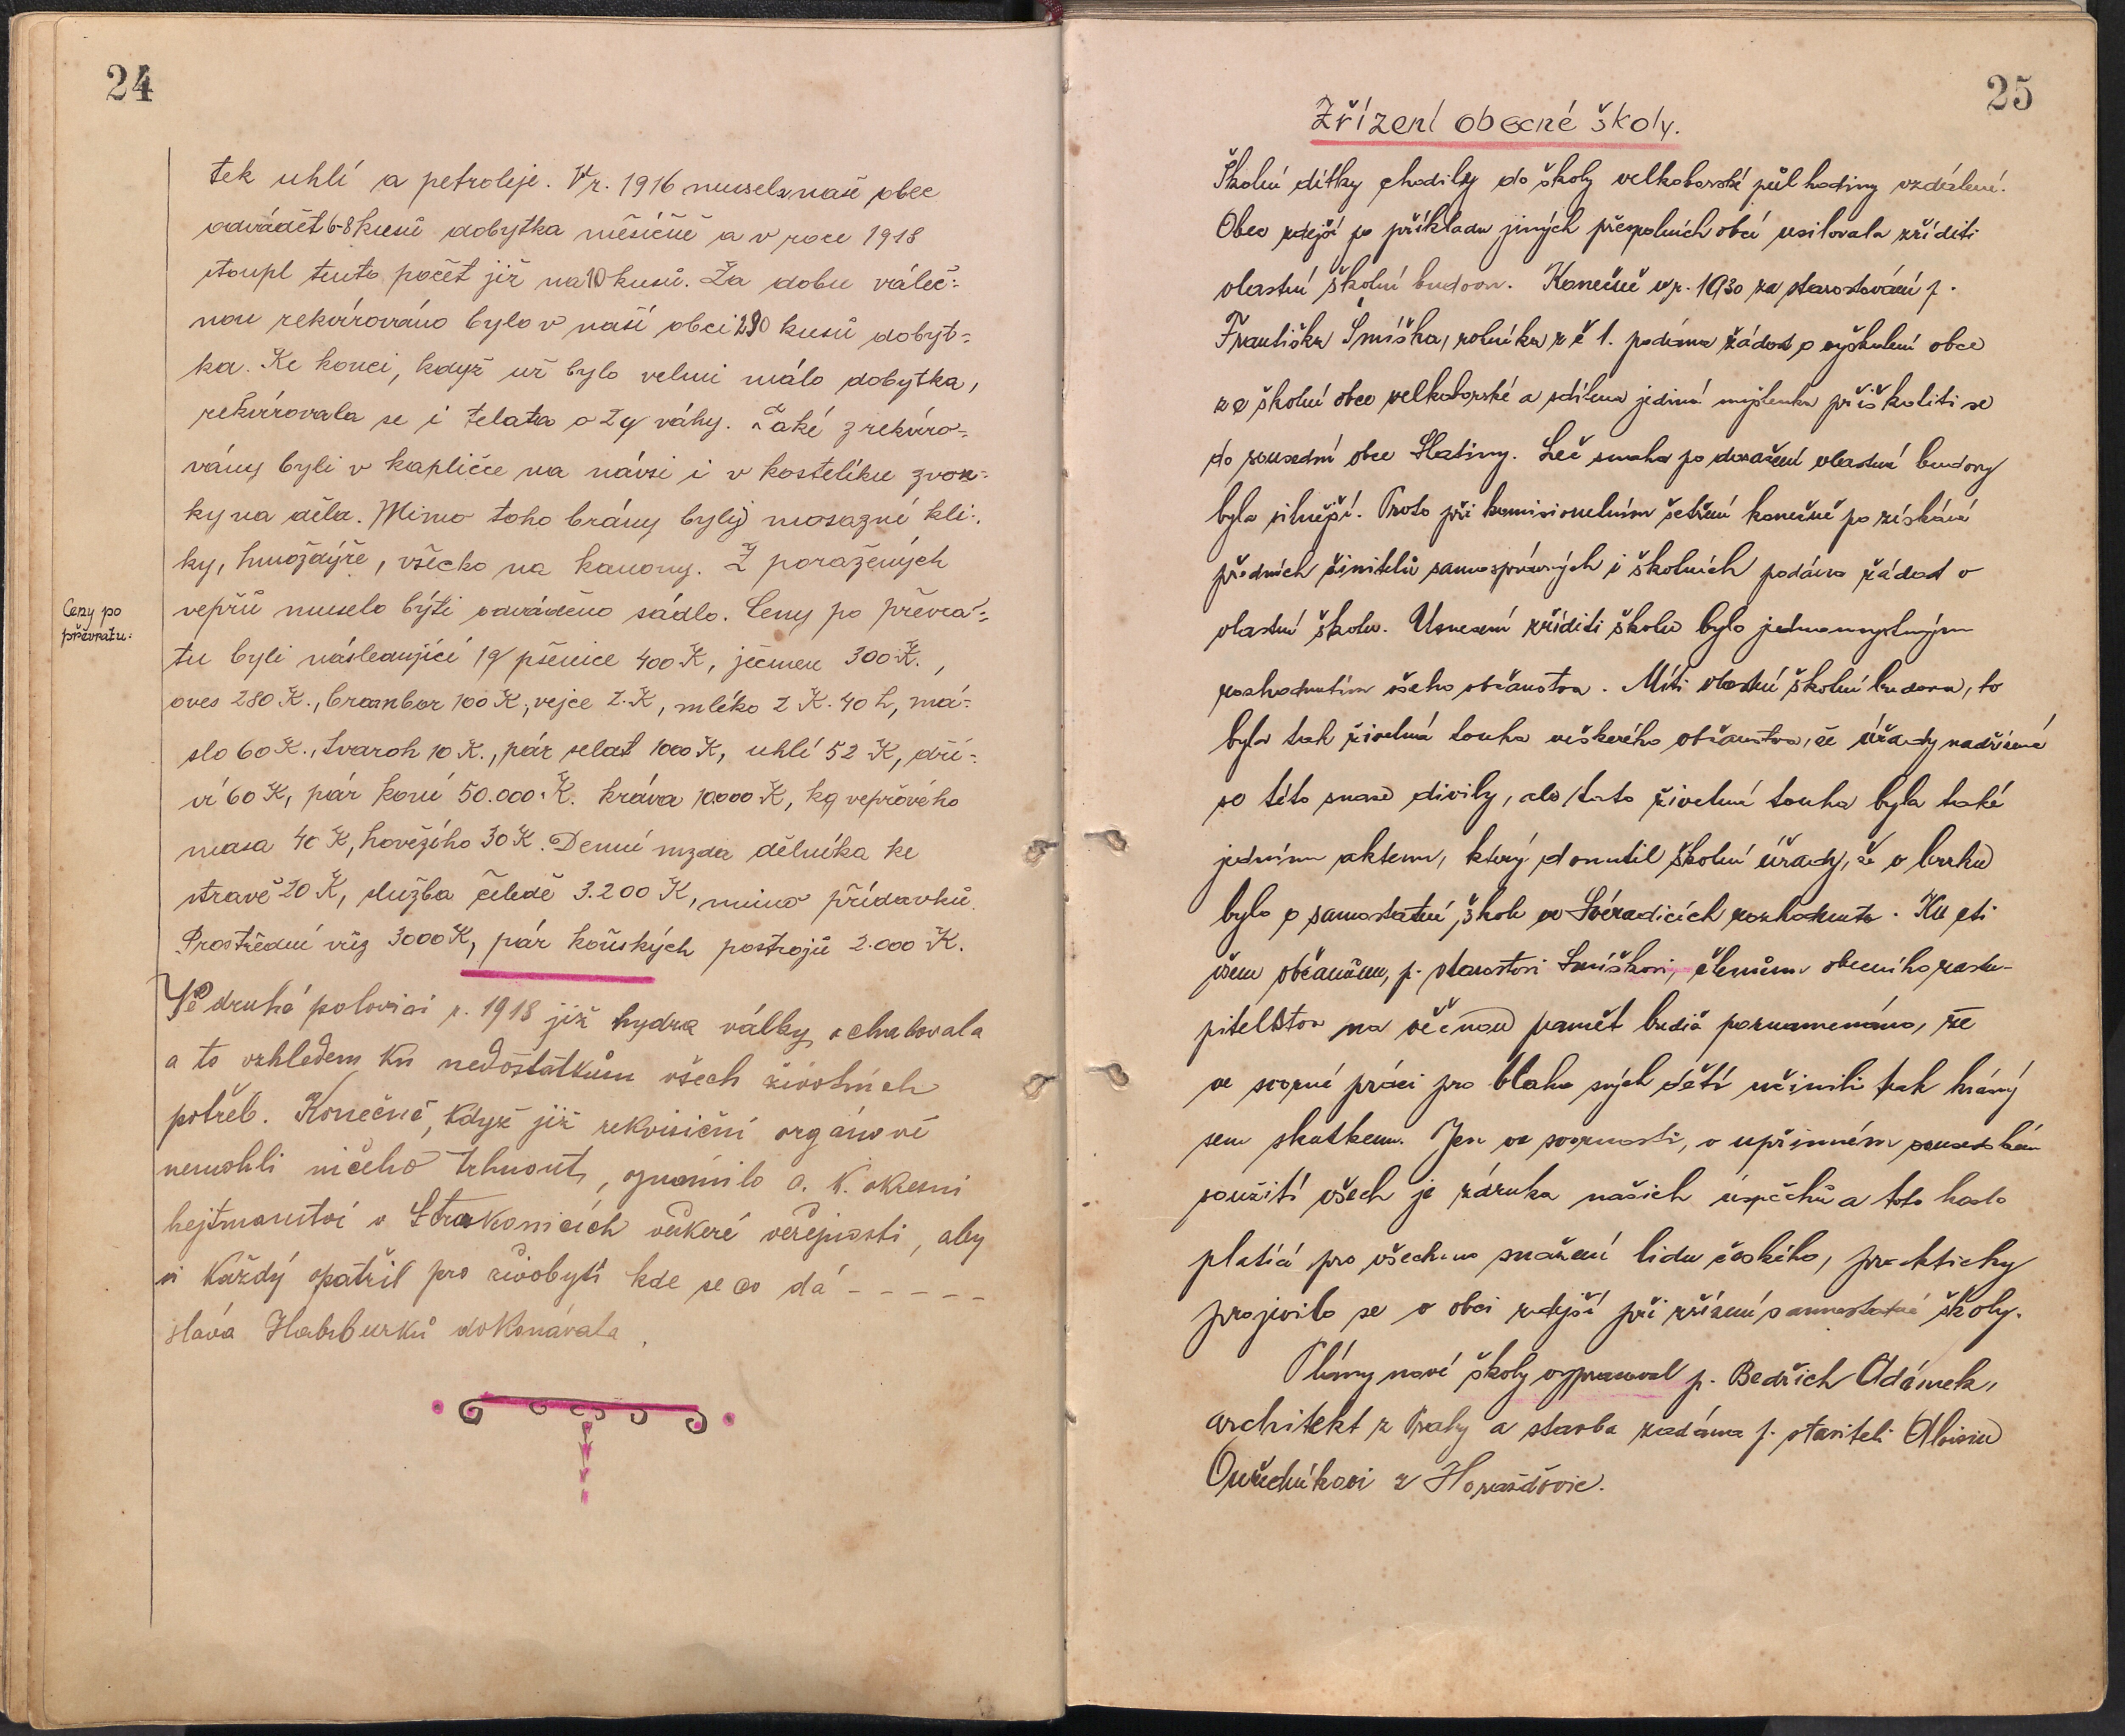 24
tek uhlí a petroleje. V r. 1916 musela naše obec
odvádět 6-8 kusů dobytka měsíčně a v roce 1918
stoupl tento počet již na 10 kusů. Za dobu váleč-
nou rekvirováno bylo v naší obci 290 kusů dobyt-
ka. Ke konci, když už bylo velmi málo dobytka,
rekvírovala se i telata o 2q váhy. Také zrekvíro-
vány byli v kapličce na návsi i v kostelíku zvon-
ky na děla. Mimo toho brány byly mosazné kli-
ky, hmoždýře, všecko na kanony. Z poražených
vepřů muselo býti odváděno sádlo. Ceny po převra-
Ceny po
převratu:
tu byli následující 1q pšenice 400 K, ječmen 300 K.,
oves 280 K., brambor 100 K, vejce 2. K, mléko 2 K. 40 h, má-
slo 60 K., tvaroh 10 K., pár selat 1000 K, uhlí 52 K, dří-
ví 60 K, pár koní 50.000. K. kráva 10.000 K, kg vepřového
masa 40 K, hovězího 30 K. Denní mzda dělníka ke
stravě 20 K, služba čeledě 3.200 K, mimo přídavků.
Prostřední vůz 3000 K, pár koňských postrojů 2.000 K.
Ve druhé polovici r. 1918 již hydra války ochabovala
a to vzhledem ku nedostatkům všech životních
potřeb. Konečně, když již rekvisiční orgánové
nemohli ničeho trhnout, oznámilo c. k. okresní
hejtmanství v Strakonicích veškeré veřejnosti, aby
si každý opatřil pro živobytí kde se co dá - - - - -
sláva Habsburků dokonávala.
25
Zřízení obecné školy.
Školní dítky chodily do školy velkoborské půl hodiny vzdálené.
Obec zdejší po příkladu jiných přespolních obcí usilovala zříditi
vlastní školní budovu. Konečně v r. 1930 za starostování p.
Františka Smíška, rolníka z č 1. podána žádost o vyškolení obce
ze školní obce velkoborské a sdílena jediná myšlenka přiškoliti se
do sousední obce Slatiny. Leč snaha po dosažení vlastní budovy
byla silnější. Proto při komisionelním šetření konečně po získání
předních činitelů samosprávných i školních podána žádost o
vlastní školu. Usnesení zříditi školu bylo jednomyslným
rozhodnutím všeho občanstva. Míti vlastní školní budovu, to
byla tak živelná touha veškerého občanstva, že úřady nadřízené
se této snaze divily, ale tato živelná touha byla také
jedním aktem, který donutil školní úřady, že v brzku
bylo o samostatné škole ve Svéradicích rozhodnuto. Ku cti
všem občanům, p. starostovi Smíškovi, členům obecního zastu-
pitelstva na věčnou paměť budiž poznamenáno, že
ve svorné práci pro blaho svých dětí učinili tak krásný
sem skutkem. Jen ve svornosti, v upřímném sousedském
soužití všech je záruka našich úspěchů a toto heslo
platící pro všechno snažení lidu českého, prakticky
projevilo se v obci zdejší při zřízení samostatné školy.
Plány nové školy vypracoval p. Bedřich Adámek,
architekt z Prahy a stavba zadána p. staviteli Aloisu
Ouředníkovi z Horažďovic.